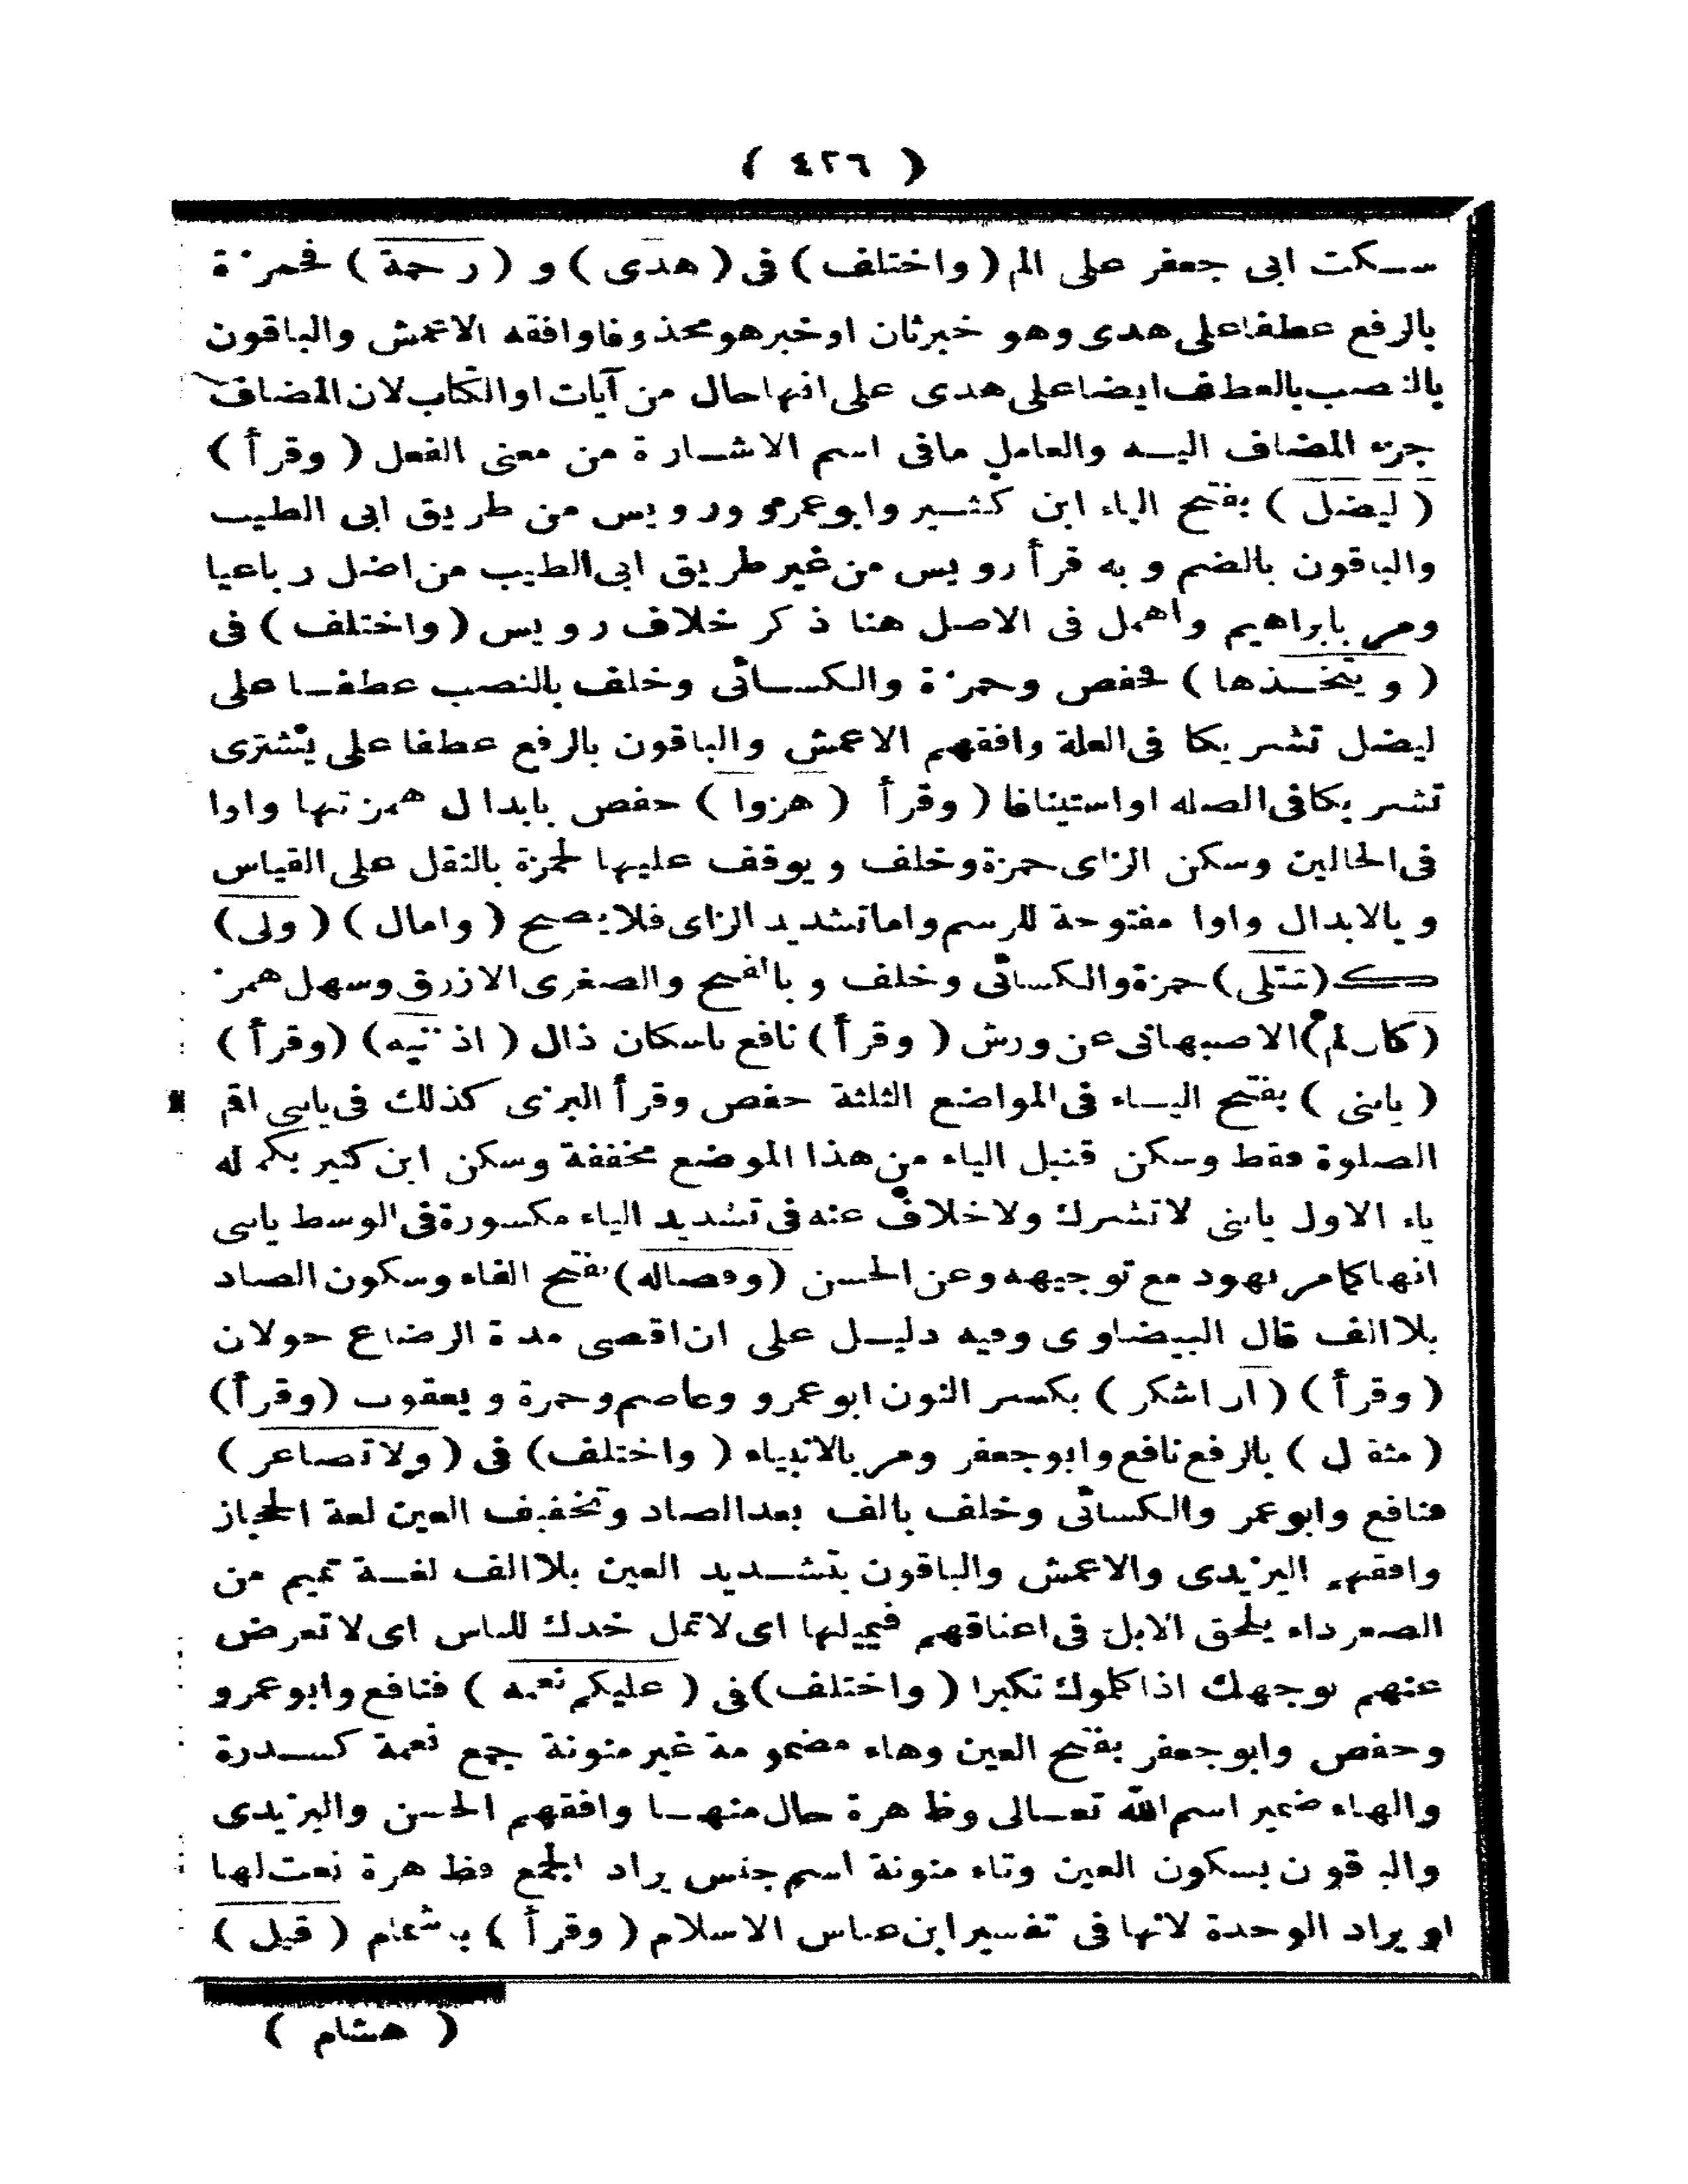 ( ٤٢٦ )
سكت ابى جعفر على الم ( واختلف ) فى ( هدى ) و ( رحمة ) فحمزة
بالرفع عطفا على هدى وهو خبرثان او خبر هو محذوفا وافقه الاعمش والباقون
بالنصب بالعطف ايضا على هدى على انها حال من آيات او الكتاب لان المضاف
جزء المضاف اليه والعامل مافى اسم الاشارة من معنى الفعل ( وقرأ )
( ليضل ) بفتح الياء ابن كثير وابوعمرو ورويس من طريق ابى الطيب
والباقون بالضم وبه قرأ رويس من غير طريق ابى الطيب من اضل رباعيا
ومر بابراهيم واهمل فى الاصل هنا ذكر خلاف رويس ( واختلف ) فى
( ويتخذها ) فحفص وحمزة والكسائى وخلف بالنصب عطفا على
ليضل تشريكا فى العلة وافقهم الاعمش والباقون بالرفع عطفا على يشترى
تشريكا فى الصله او استينافا ( وقرأ ( هزوا ) حفص بابدال همزتها واوا
فى الحالين وسكن الزاى حمزة وخلف ويوقف عليها لحمزة بالنقل على القياس
وبالابدال واوا مفتوحة للرسم واما تشديد الزاى فلا يصح ( وامال ) ( ولى )
ك ( تتلى ) حمزة والكسائى وخلف وبالفتح والصغرى الازرق وسهل همز
( كان لم ) الاصبهانى عن ورش ( وقرأ ) نافع باسكان ذال ( اذنيه ) ( وقرأ )
( يابنى ) بفتح الياء فى المواضع الثلثة حفص وقرأ البزى كذلك فى يابنى اقم
الصلوة فقط وسكن قنبل الياء من هذا الموضع مخففة وسكن ابن كثير بكماله
ياء الاول يابنى لاتشرك ولاخلاف عنه فى تشديد الياء مكسورة فى الوسط يابنى
انها كما مر بهود مع توجيهه وعن الحسن ( وفصاله ) بفتح الفاء وسكون الصاد
بلا الف قال البيضاوى وفيه دليل على ان اقصى مدة الرضاع حولان
( وقرأ ) ( ان اشكر ) بكسر النون ابو عمرو وعاصم وحمزة ويعقوب ( وقرأ )
( مثقال ) بالرفع نافع وابوجعفر ومر بالانبياء ( واختلف ) فى ( ولا تصاعر )
فنافع وابو عمر والكسائى وخلف بالف بعد الصاد وتخفيف العين لغة الحجاز
وافقهم اليزيدى والاعمش والباقون بتشديد العين بلا الف لغة تميم من
الصعر داء يلحق الابل فى اعناقهم فيميلها اى لا تمل خدك للناس اى لا تعرض
عنهم بوجهك اذا كلموك تكبرا ( واختلف ) فى ( عليكم نعمه ) فنافع وابو عمرو
وحفص وابو جعفر بفتح العين وهاء مضمومة غير منونة جمع نعمة كسدرة
والهاء ضمير اسم الله تعالى وظاهرة حال منها وافقهم الحسن واليزيدى
والباقون بسكون العين وتاء منونة اسم جنس يراد الجمع فظاهرة نعت لها
او يراد الوحدة لانها فى تفسير ابن عباس الاسلام ( وقرأ ) باشمام ( قيل )
( هشام )